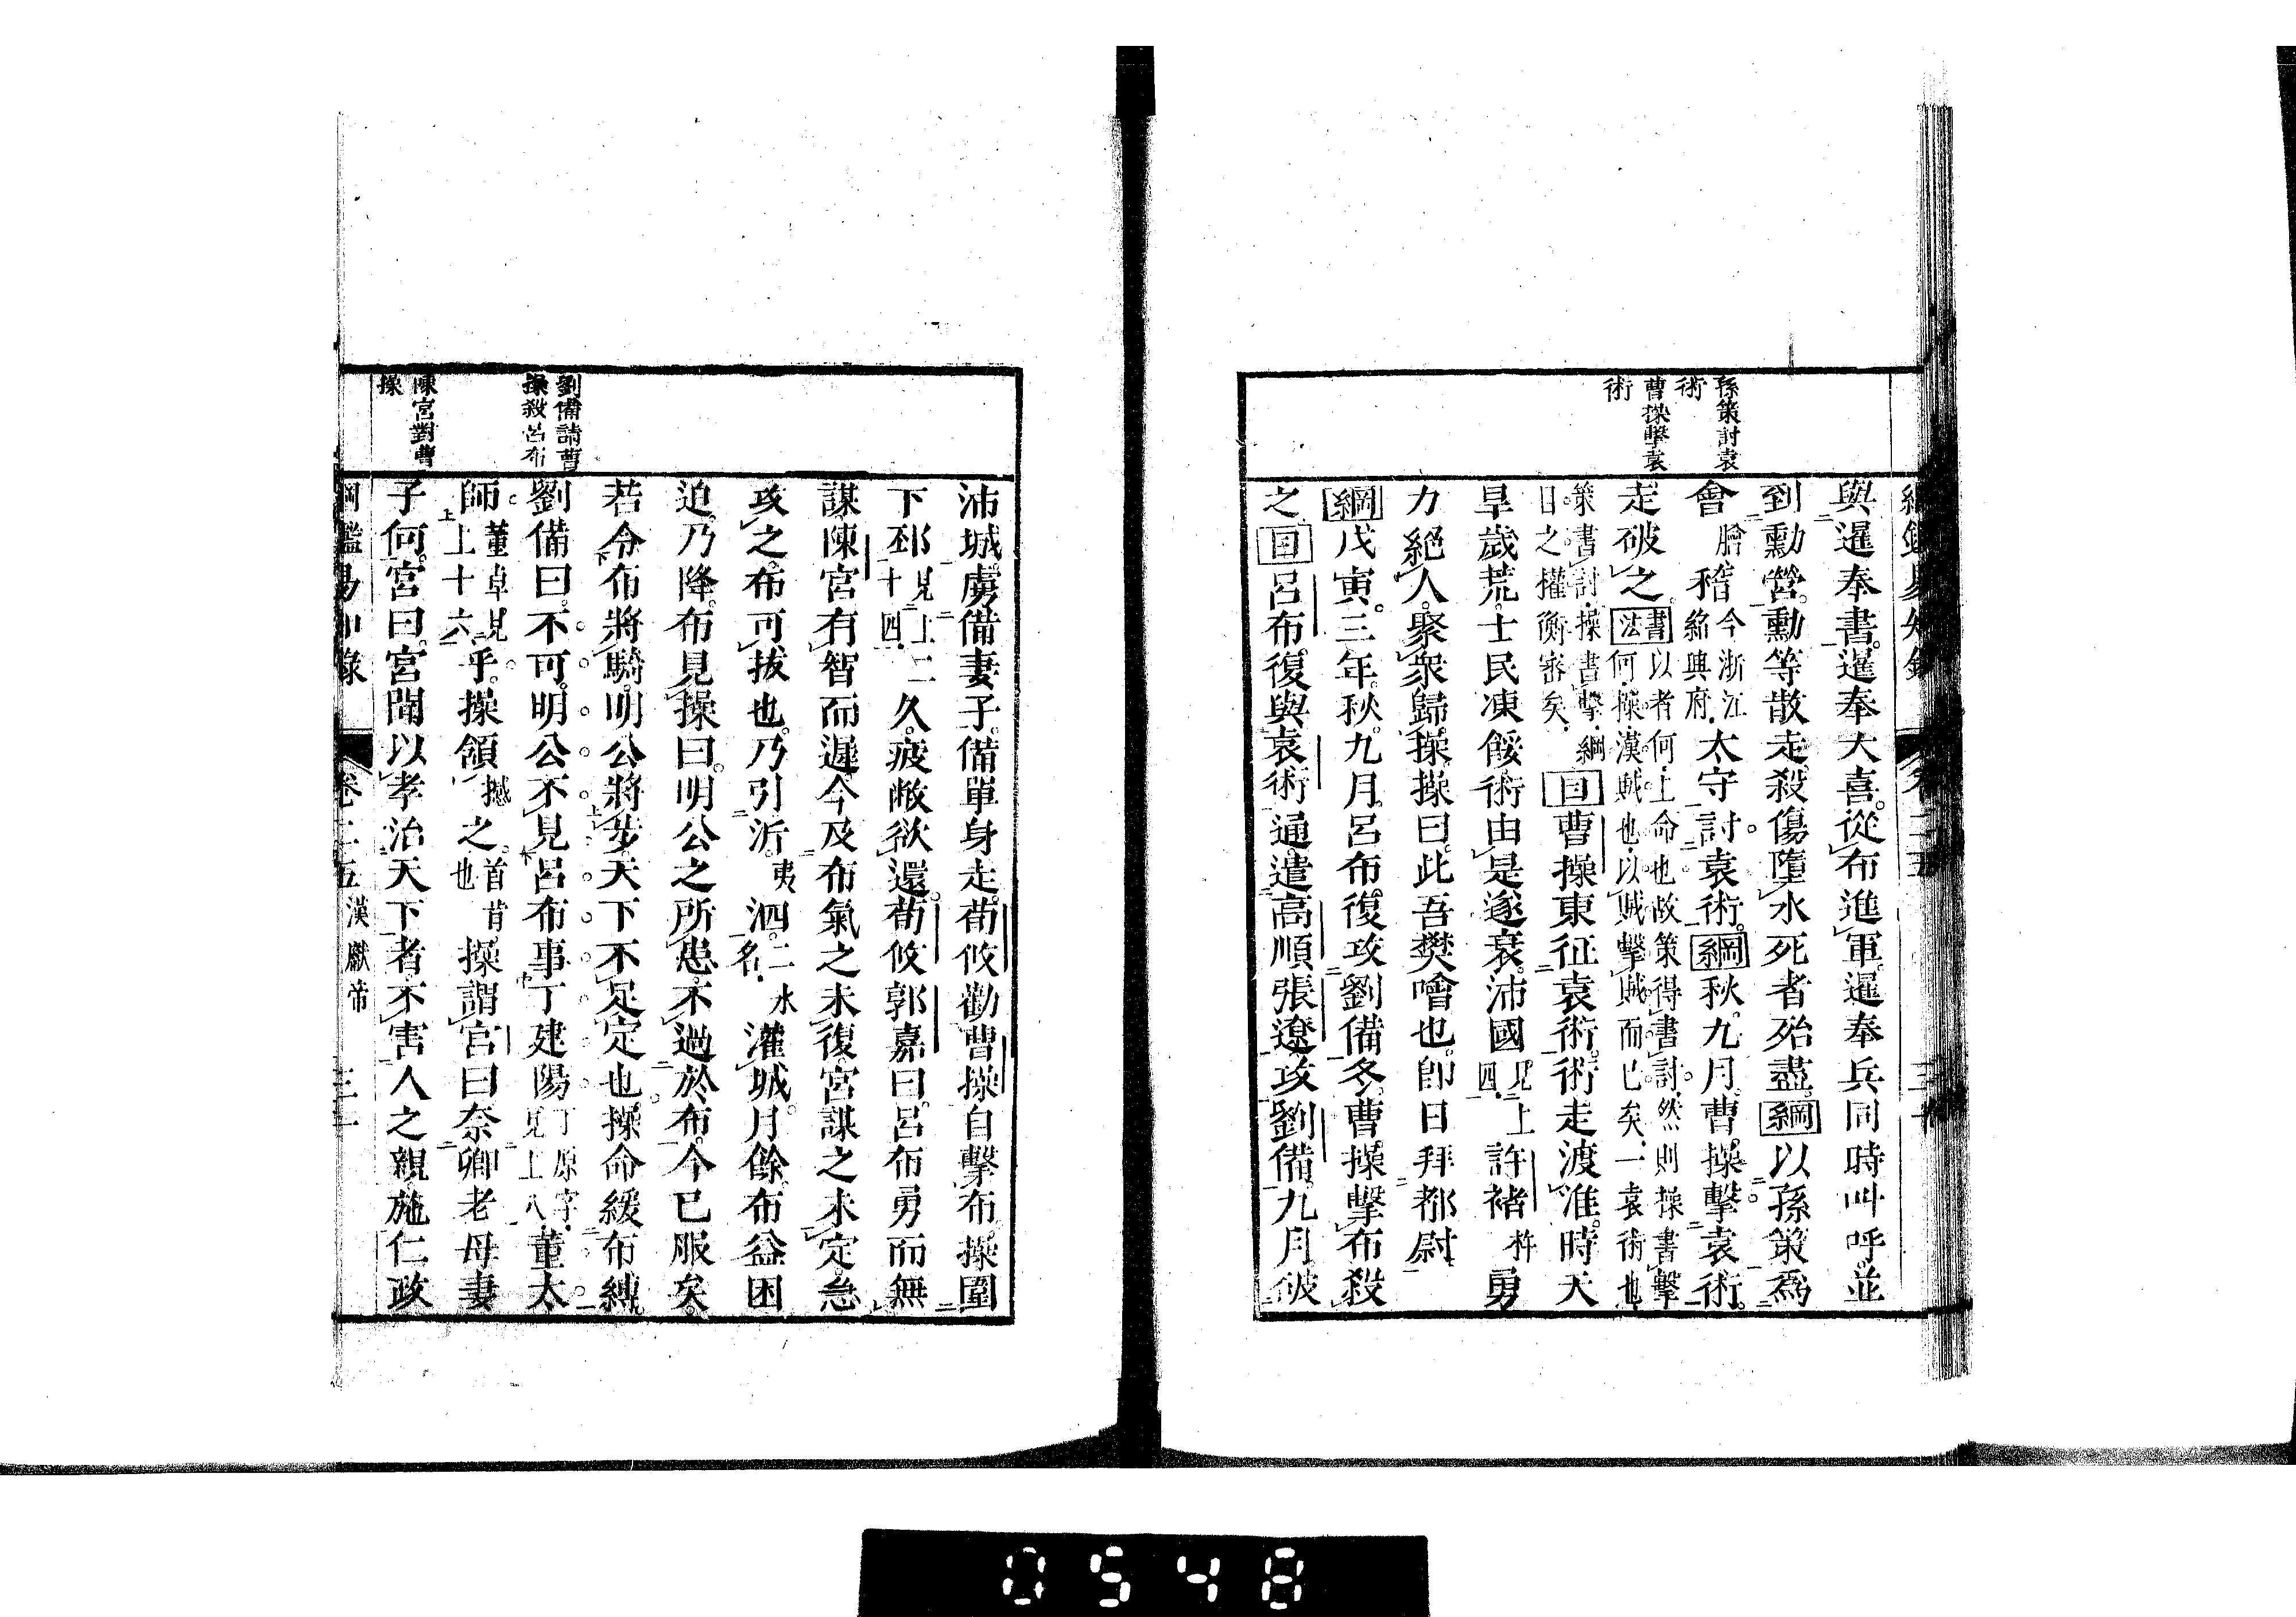 孫策討袁
術
曹操擊袁
術
與暹奉書。暹奉大喜。從布進軍。暹奉兵同時叫呼。並
到勳營。勳等散走。殺傷墮水死者殆盡。綱以孫策為
會膾稽今浙江紹興府太守討袁術。綱秋。九月。曹操擊袁術。
走破之。書法書以者何。上命也。故策得書討。然則操書擊
何。操漢賊也。以賊擊賊而已矣。一袁術也。
策書討。操書擊。綱
目之權衡審矣。目曹操東征袁術。術走渡淮。時天
旱歲荒。士民凍餒。術由是遂衰。沛國見上四許褚杵勇
力絕人。聚衆歸操。操曰。此吾樊噲也。即日拜都尉。
綱戊寅。三年。秋。九月。呂布復攻劉備。冬。曹操擊布殺
之。目呂布復與袁術通。遣高順張遼攻劉備。九月破
劉備請曹
操殺呂布
陳宮對曹
操
沛城。虜備妻子。備單身走。荀攸勸曹操自擊布。操圍
下邳見上二十四久。疲敝欲還。荀攸郭嘉曰。呂布勇而無
謀。陳宮有智而遲。今及布氣之未復。宮謀之未定。急
攻之。布可拔也。乃引沂夷泗二水名灌城。月餘。布益困
迫。乃降。布見操曰。明公之所患。不過於布。今已服矣。
若令布將騎。明公將步。天下不足定也。操命緩布縛。
劉備曰。不可。明公不見呂布事丁建陽丁原字。見上八董太
師董卓見上十六乎。操頷撼之首肯也操謂宮曰。奈卿老母妻
子何。宮曰。宮聞以孝治天下者。不害人之親。施仁政
綱鑑易知錄 卷二五 漢獻帝 三一
0548